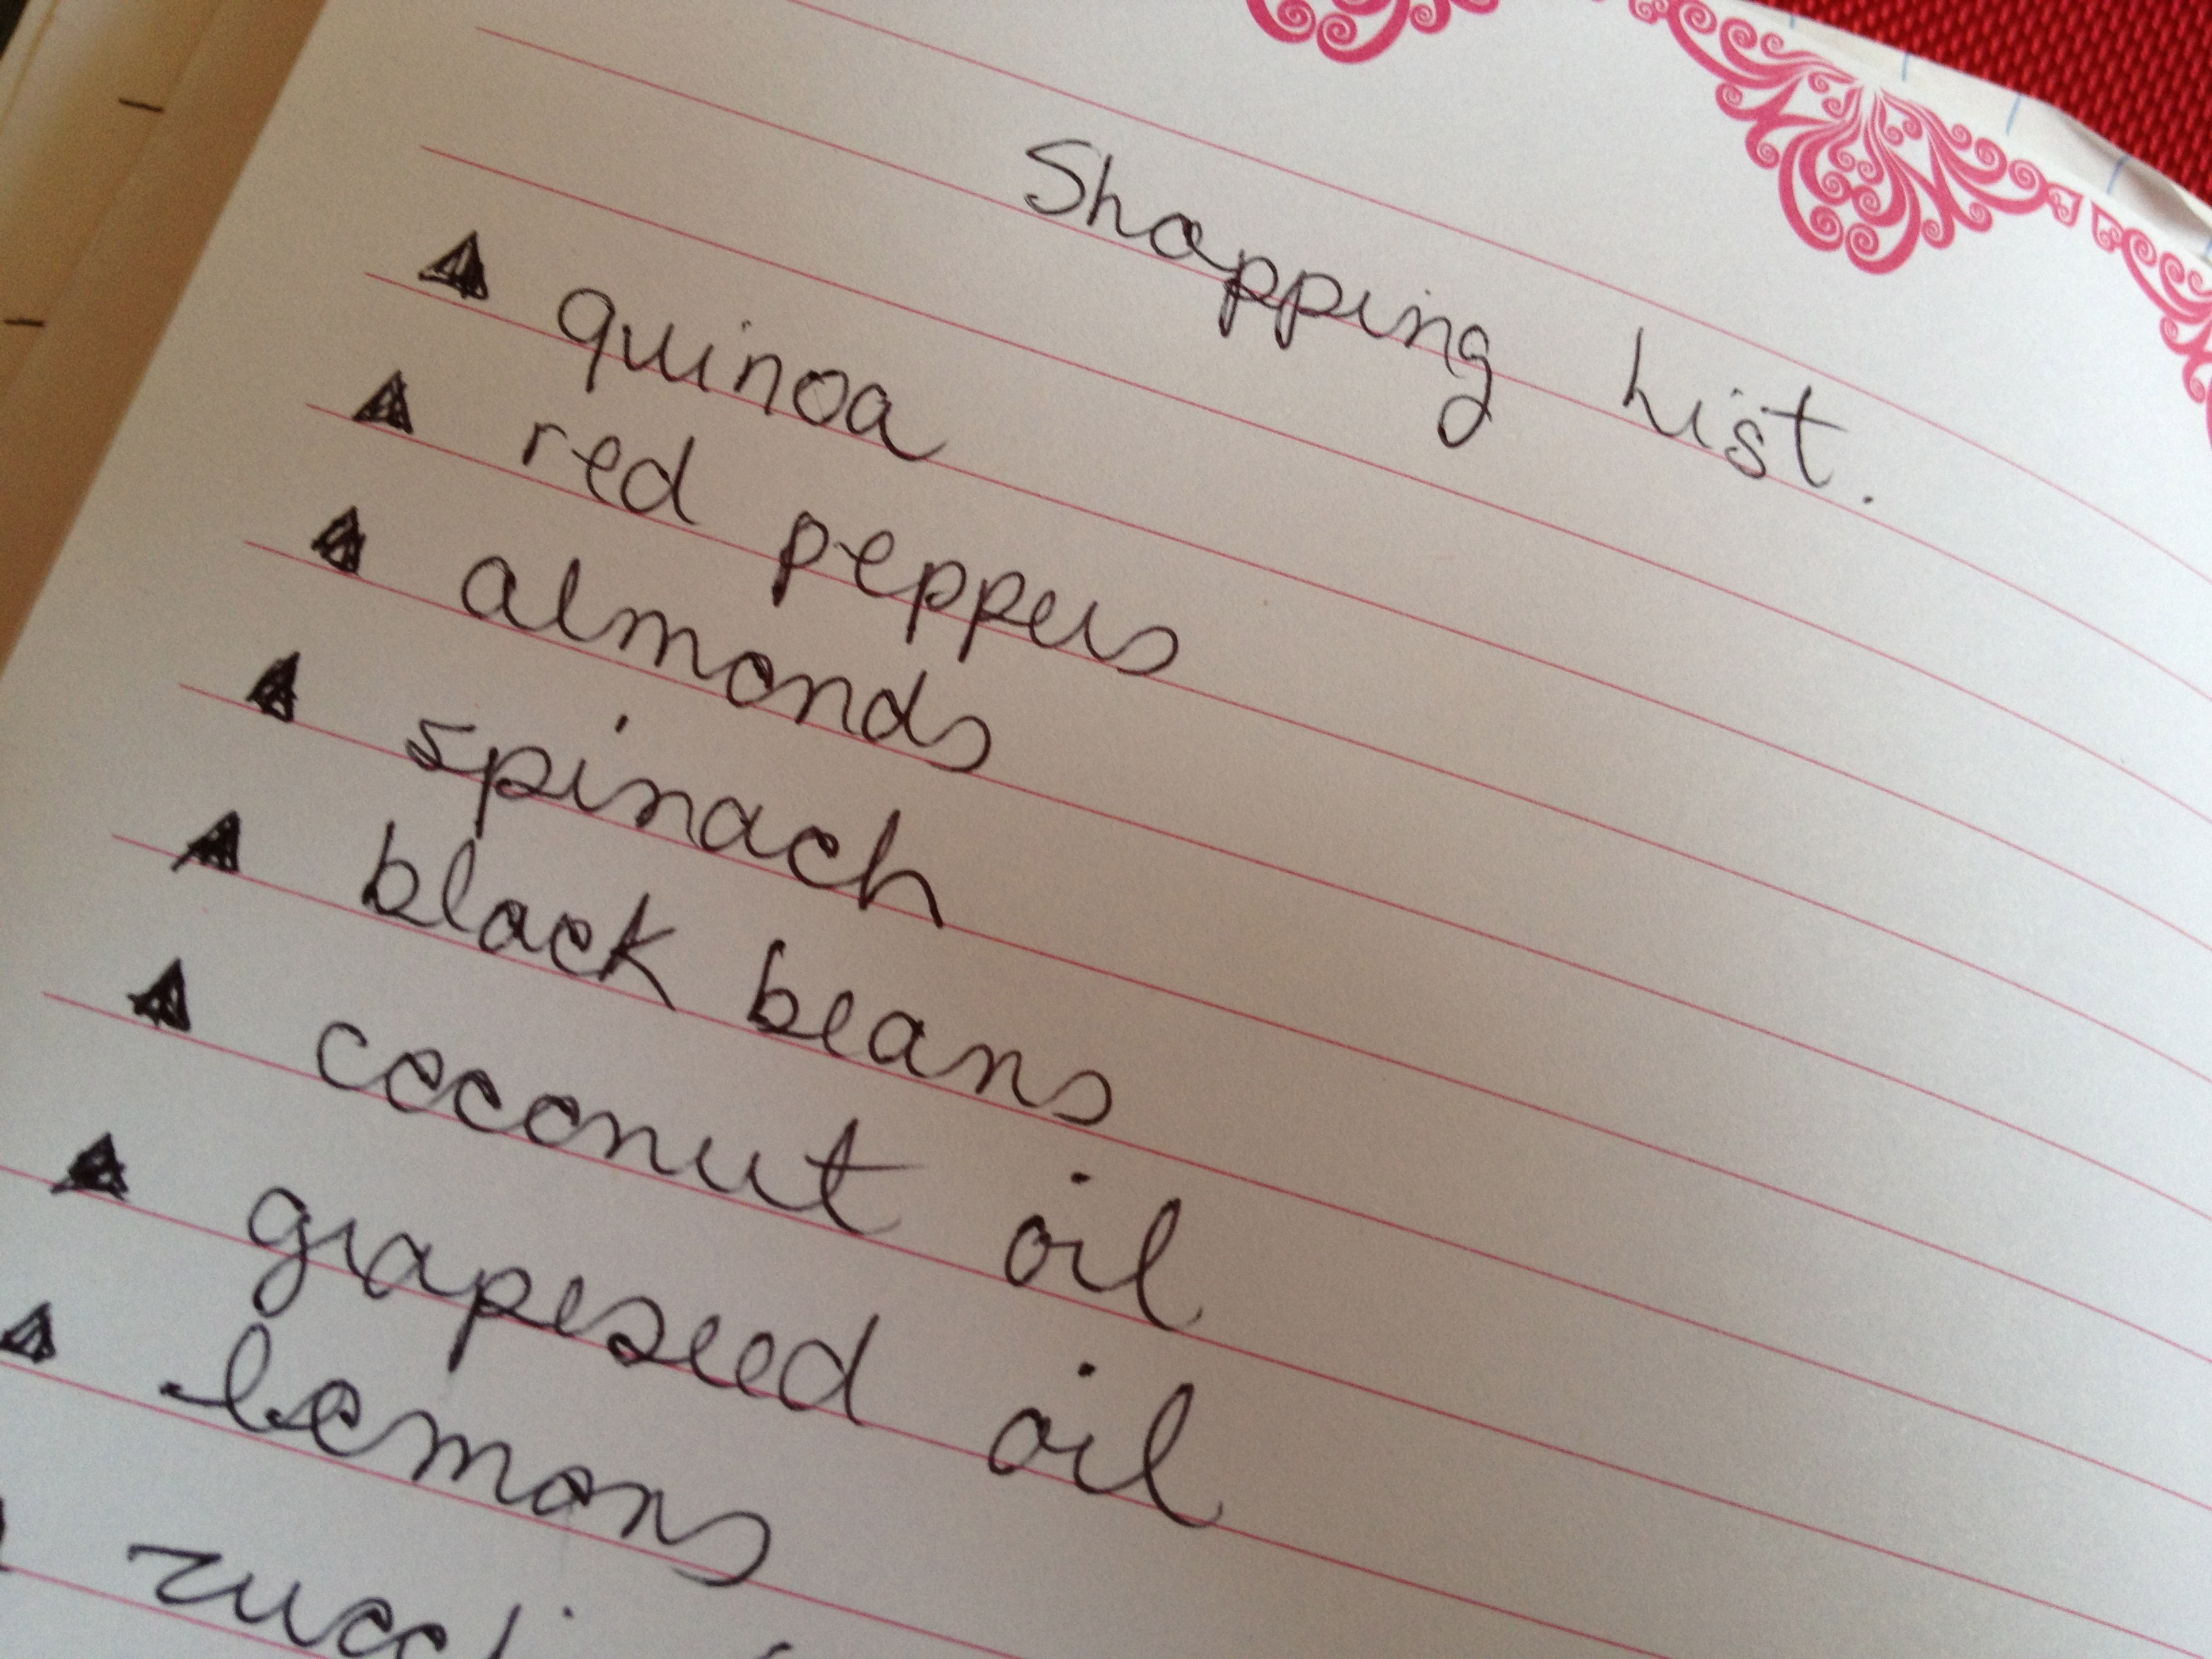 Shopping List.
quinoa
red peppers
almonds
spinach
black beans
coconut oil
grapeseed oil
lemons